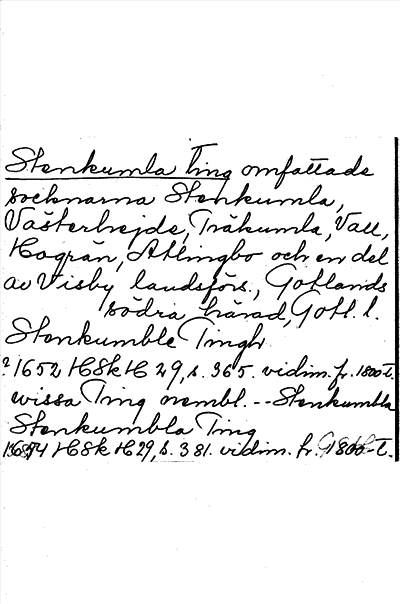 Stenkumla Ting omfattade
socknarna Stenkumla,
Västerhejde, Träkumla, Vall,
Hogrän, Atlingbo och en del
av Visby landsförs., Gotlands
södra härad, Gotl. l.
Stenkumble Tingh
? 1652 HSk H 29, s. 365. vidim. fr. 1800-t.
wissa Ting nembl. -- Stenkumbla
Stenkumbla Ting
1654 HSk H 29, s. 381. vidim. fr. 1800-t.